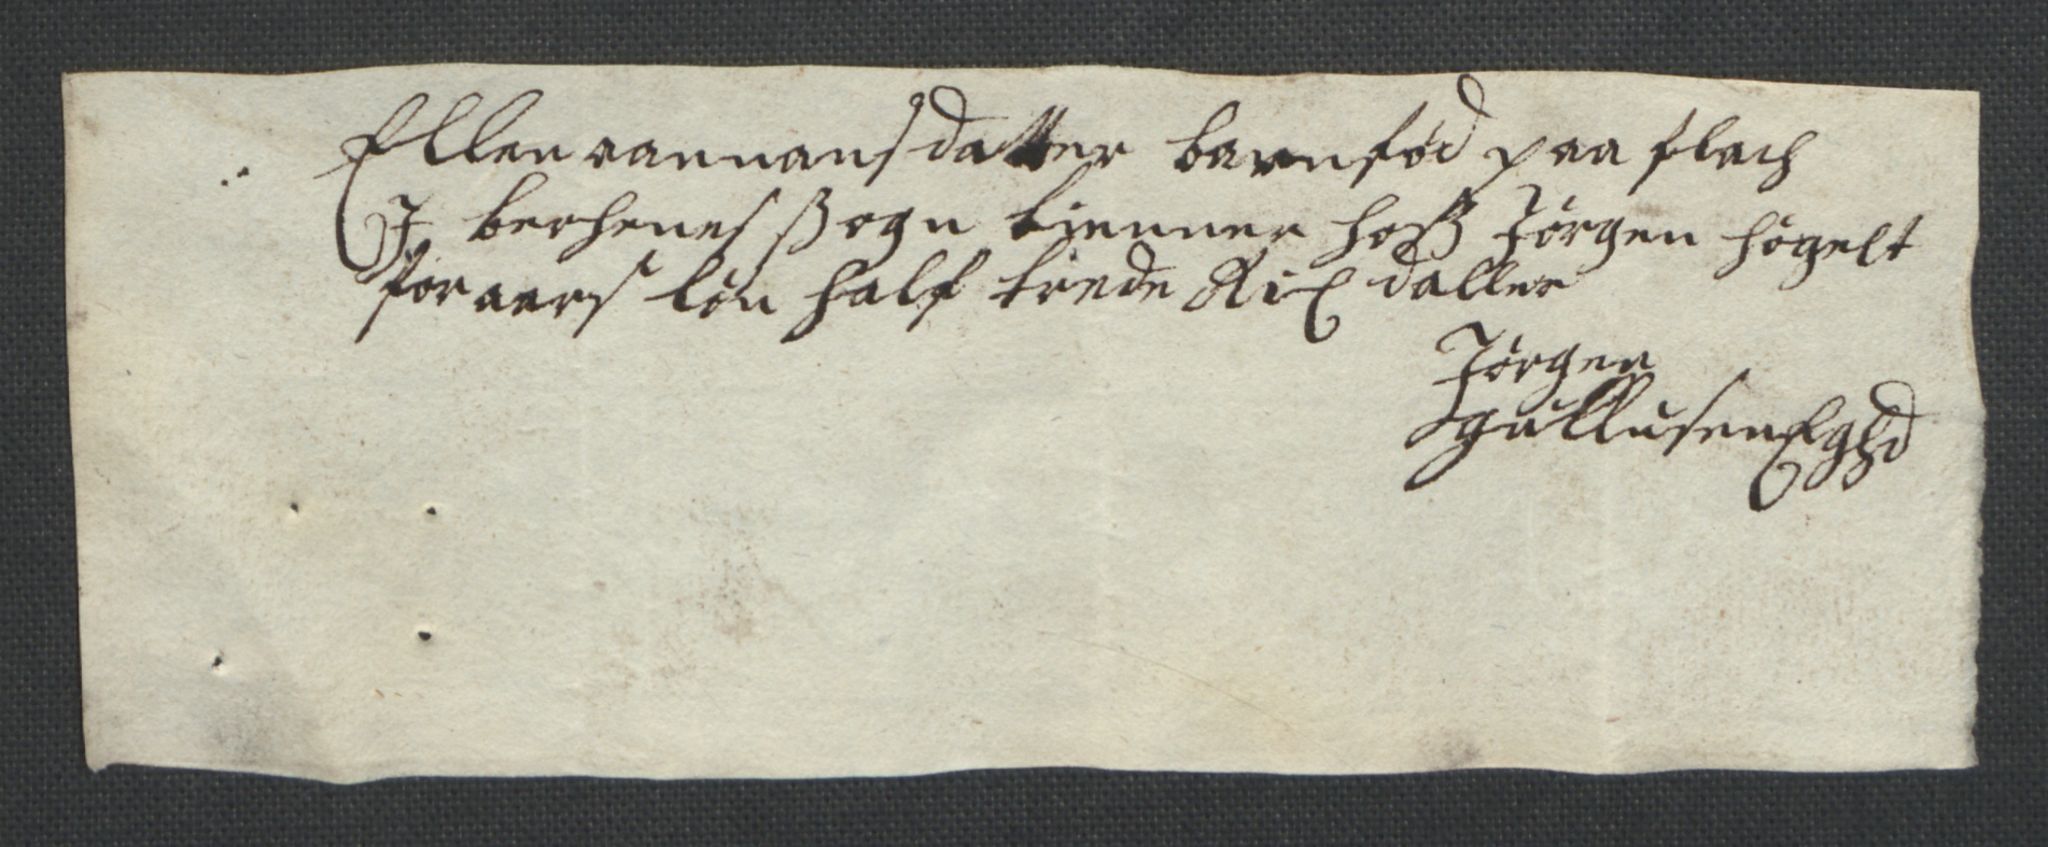 Ellen aannansdatter barnfød paa flach
J berhenes Sogn tienner hoß Jørgen högelt
for aars lön half trede Rix daller
Jørgen
gullusen Eghd